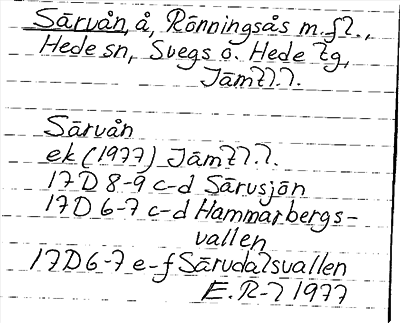 Särvån, å, Rönningsås m.fl.,
Hede sn, Svegs o. Hede tg,
Jämtl.l.
Särvån
ek (1977) Jämtl.l.
17D 8-9 c-d Särvsjön
17D 6-7 c-d Hammarbergs-
vallen
17D6-7 e-f Särvdalsvallen
E.R-l 1977